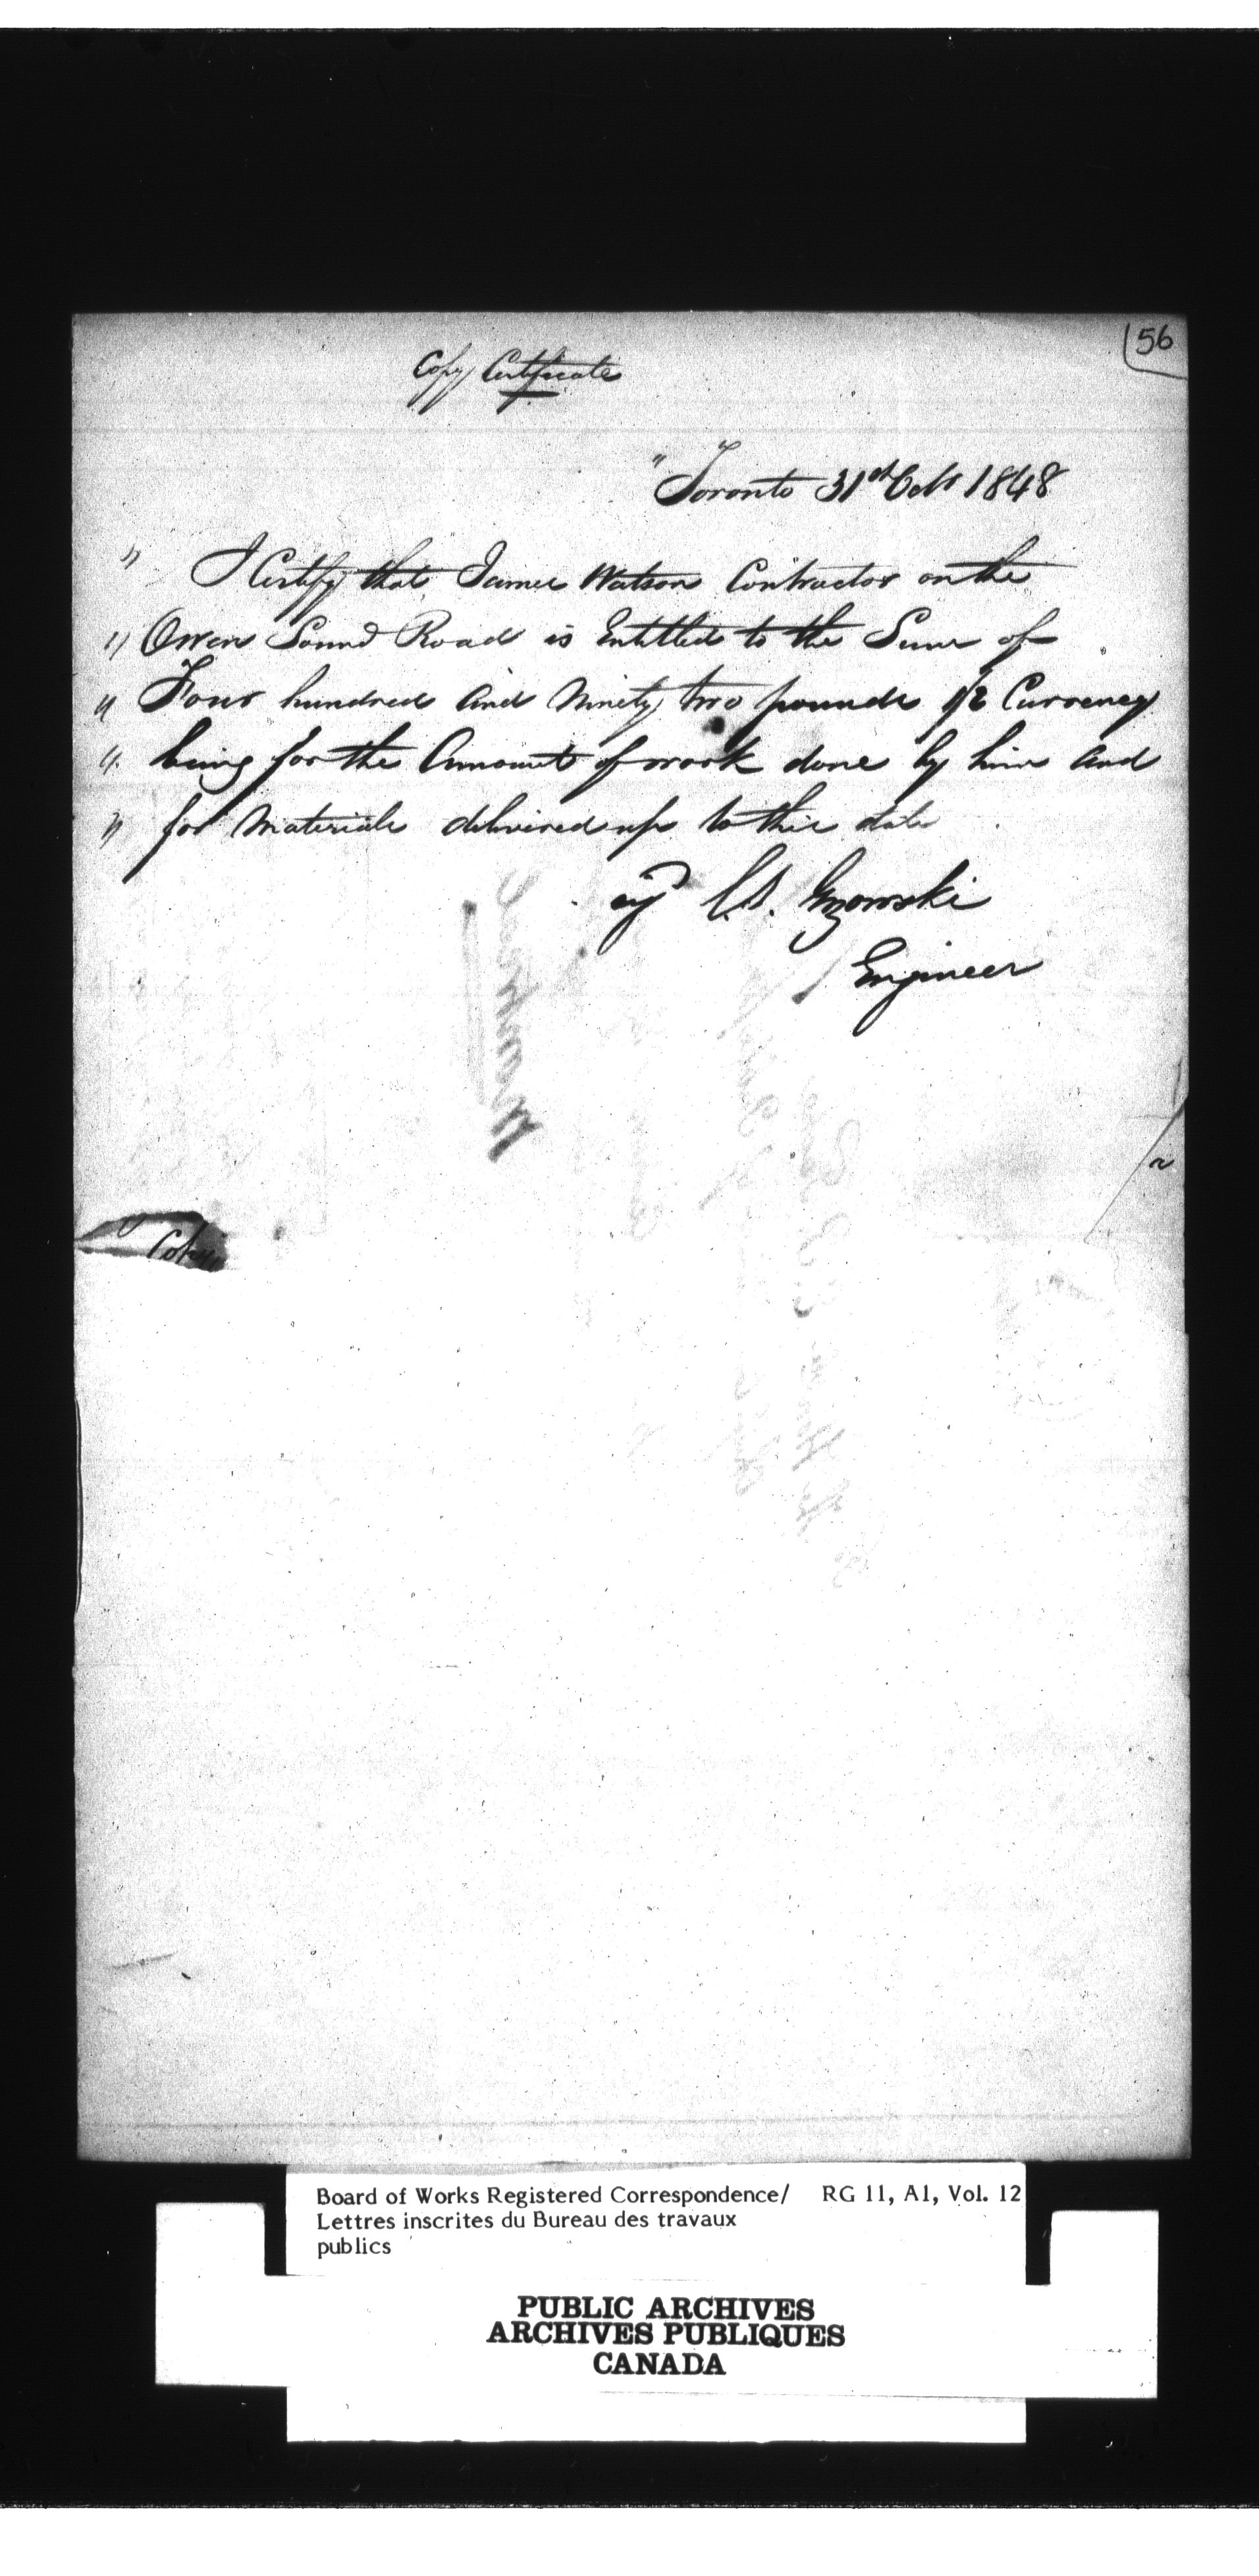 56
Copy Certificate
" Toronto 31st Octr 1848
" I Certify that James Watson Contractor on the
" Owen Sound Road is Entitled to the Sum of
" Four hundred and Ninety two pounds 1/2 Currency
" being for the Amount of work done by him and
" for Materials delivered up to this date
C.S. Gzowski
Engineer
Board of Works Registered Correspondence/ RG 11, A1, Vol. 12
Lettres inscrites du Bureau des travaux
publics
PUBLIC ARCHIVES
ARCHIVES PUBLIQUES
CANADA